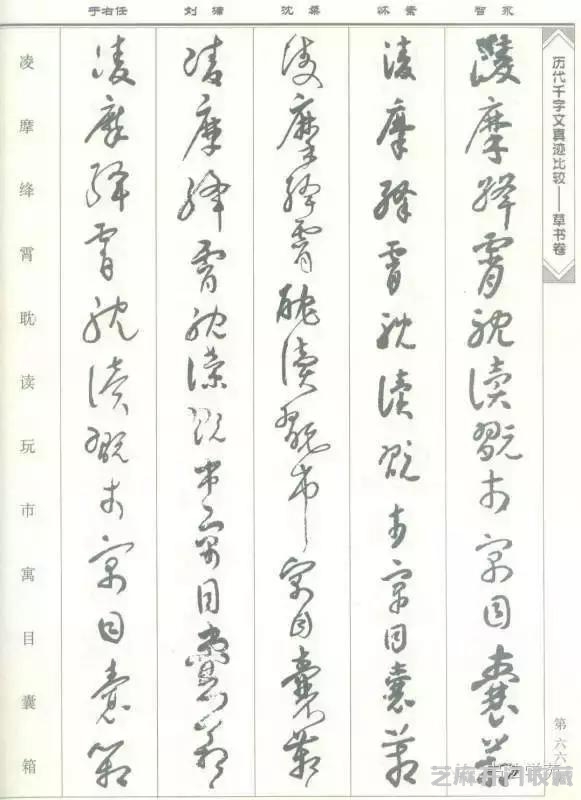 智永
怀素
沈粲
刘
于右任
历代千字文真迹比较——草书卷
凌摩絳霄耽讀翫市寓目囊箱
凌摩絳霄耽讀翫市寓目囊箱
凌摩絳霄耽讀翫市寓目囊箱
凌摩絳霄耽讀翫市寓目囊箱
凌摩絳霄耽讀翫市寓目囊箱
凌摩绛霄耽读玩市寓目囊箱
第六六
芝麻开门收藏